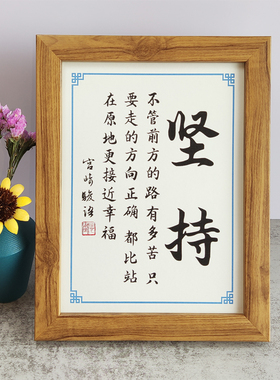 坚持
不管前方的路有多苦 只
要走的方向正确 都比站
在原地更接近幸福
宫崎骏语